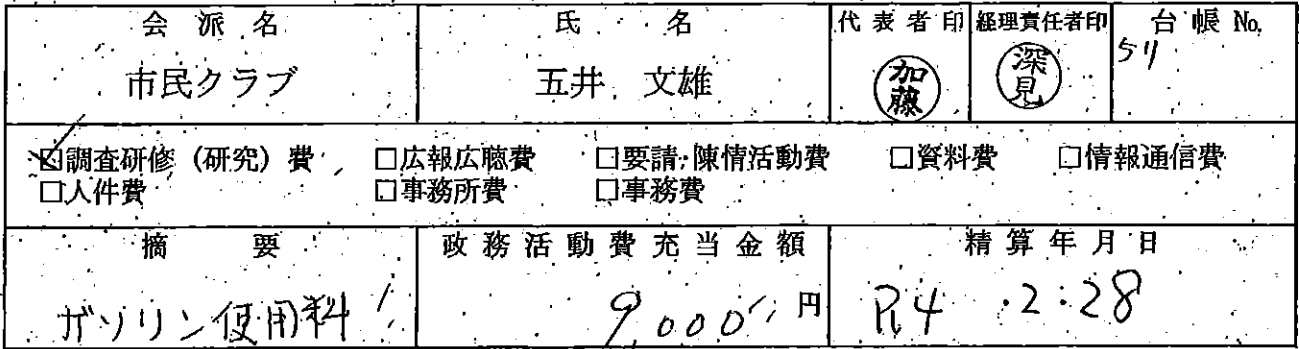 会派名 氏名 代表者印 経理責任者印 台帳No.
市民クラブ 五井 文雄 加藤 深見 511
☑調査研修(研究)費 □広報広聴費 □要請・陳情活動費 □資料費 □情報通信費
□人件費 □事務所費 □事務費
摘要 政務活動費充当金額 精算年月日
ガソリン使用料 9,000円 R4.2.28